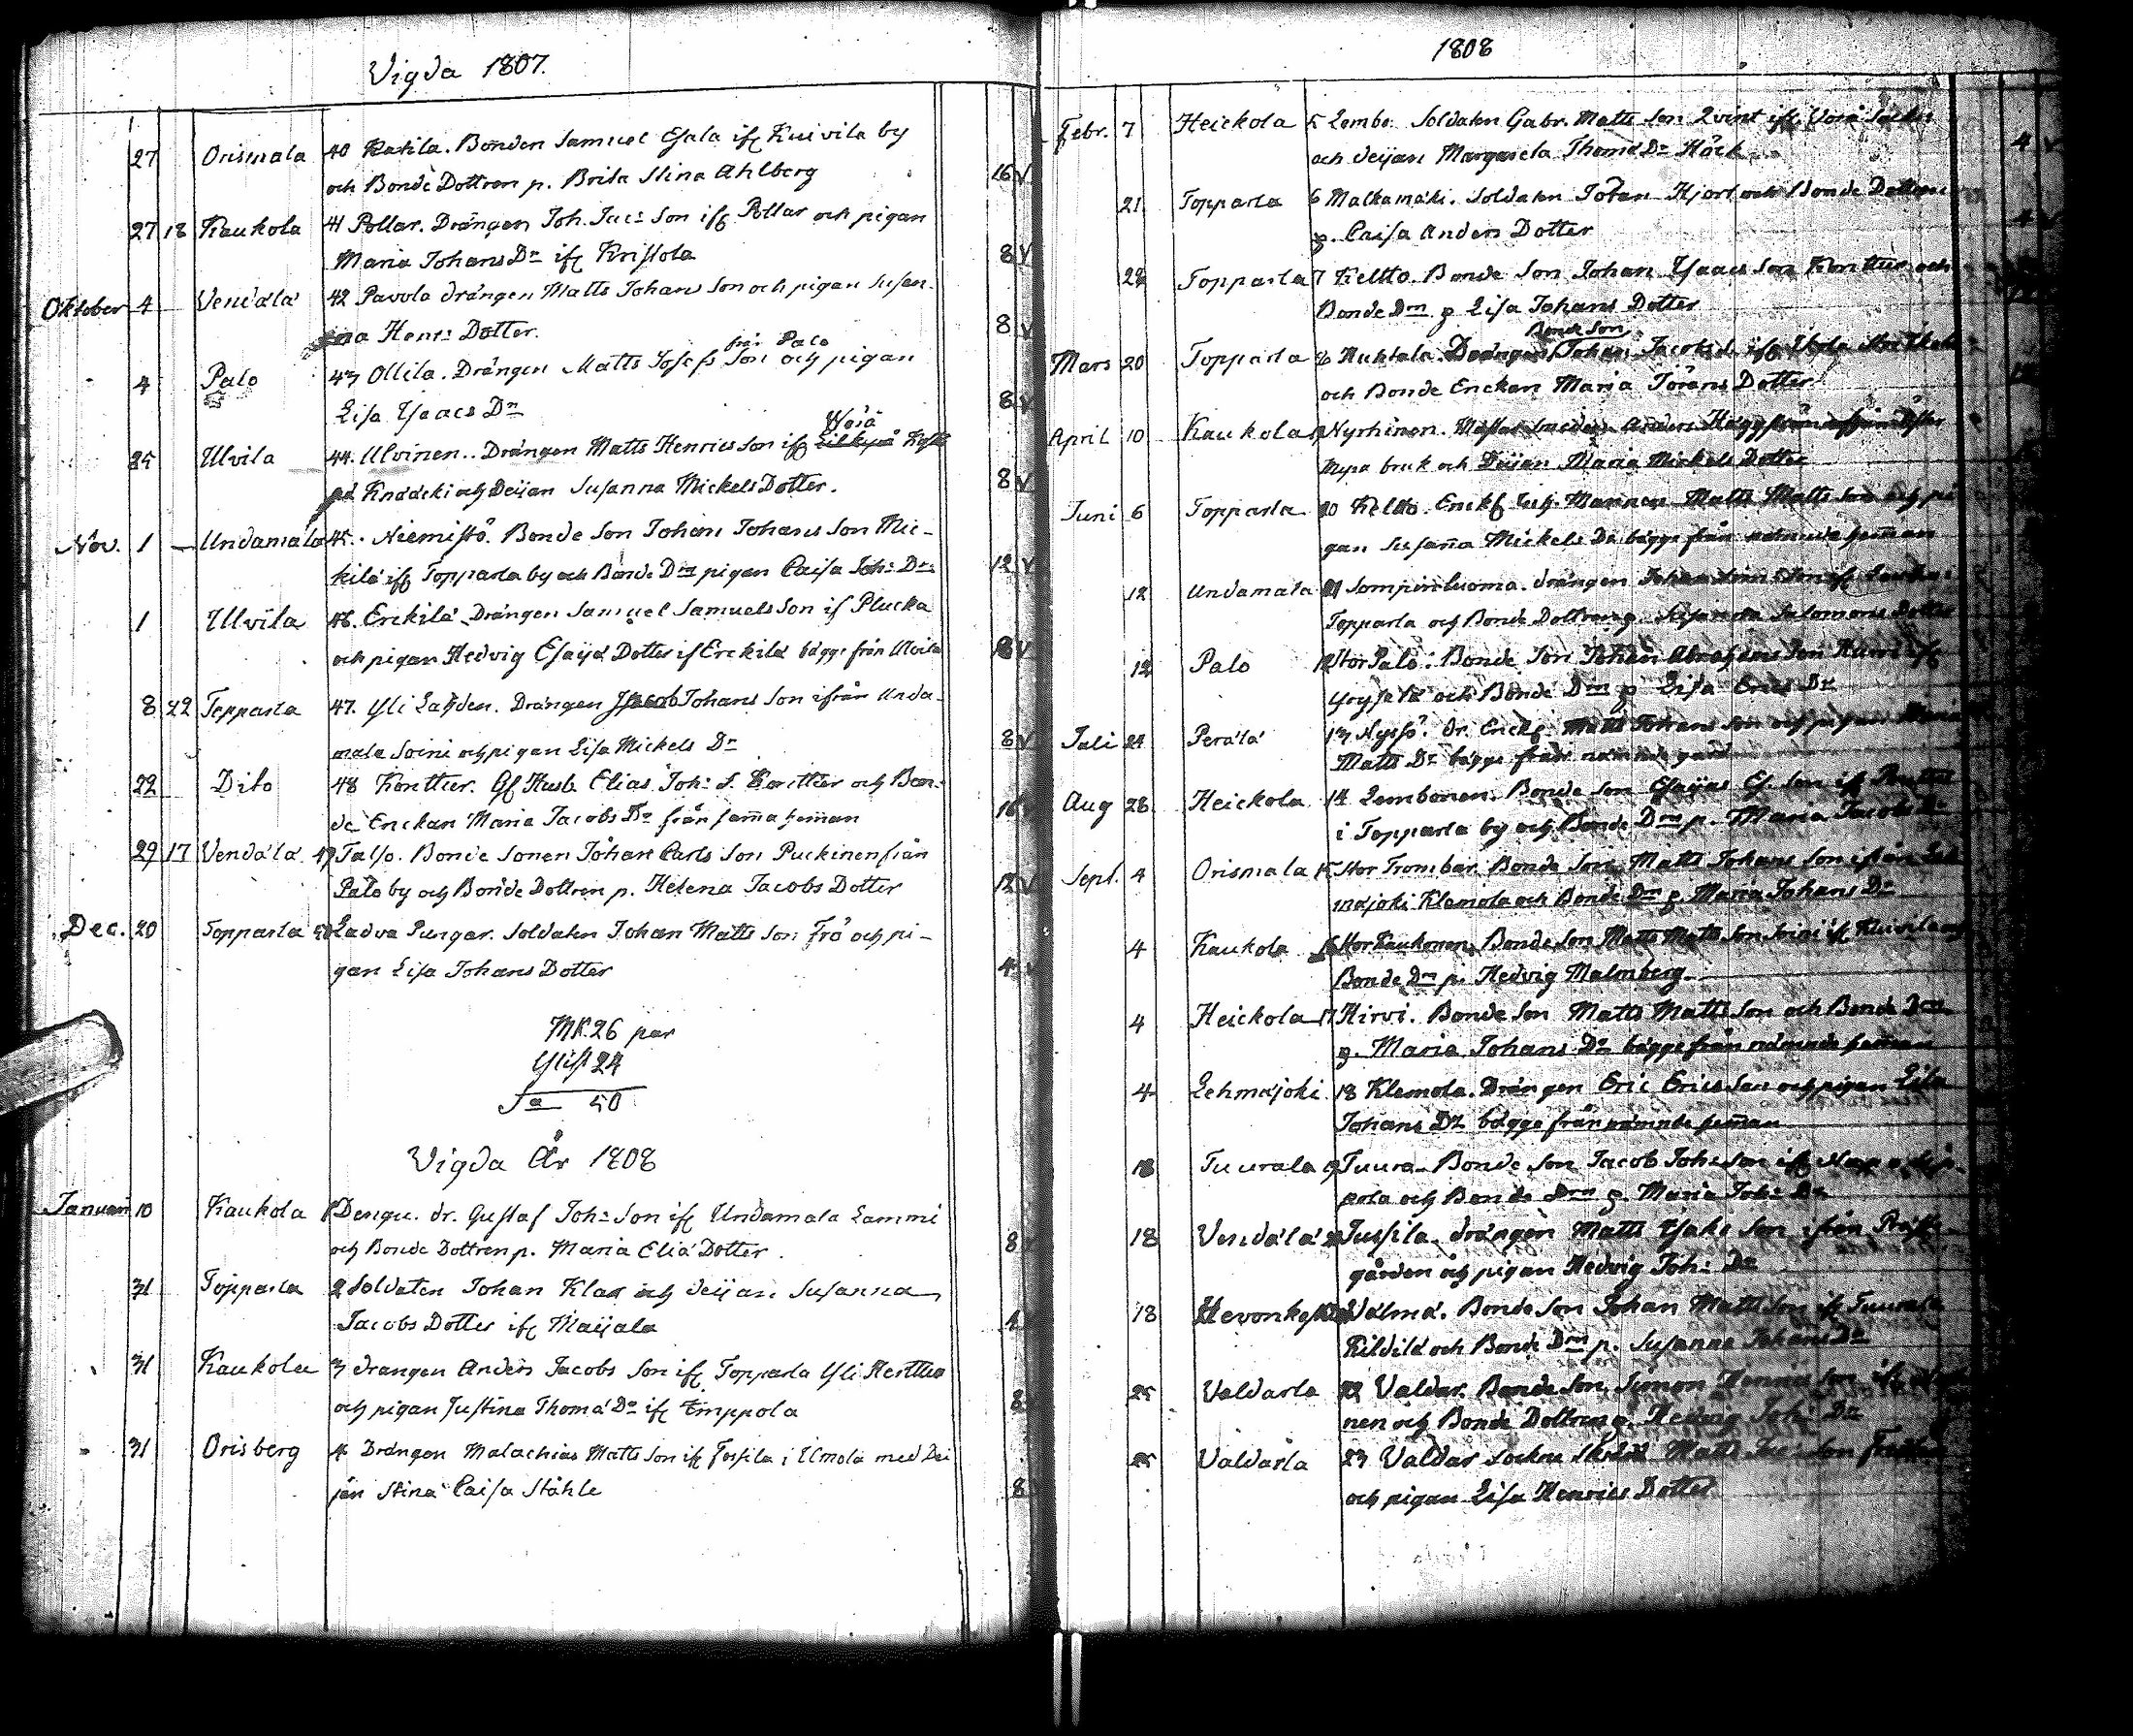 Vigda 1807.
27 Orismala 40 Katila. Bonden Samuel Esala ifr Kuivila by
och Bonde Dottren p. Brita Stina Ahlberg 16 V
27 18 Kaukola 41 Pollar. Drängen Joh. Jac: Son ifr Pollar och pigan
Maria Johans Dr ifr Kristola 8 V
Oktober 4 Vendälä 42 Pavola drängen Matts Johans Son och pigan Susan-
na Henr: Dotter. 8 V
från Palo
4 Palo 43 Ollila. Drängen Matts Josefs Son och pigan
Lisa Isaacs Dr 8 V
Wörå
25 Ulvila 44. Ulvinen.. Drängen Matts Henrics Son ifr
på och Deijan Susanna Mickels Dotter. 8 V
Nov. 1 Undamala 45. Niemistö. Bonde Son Johan Johans Son Mic-
kilä ifr Topparla by och Bonde Drn pigan Caisa Joh: Dr: 12 V
1 Ulvila 46. Erckilä Drängen Samuel Samuels Son if Plucka
och pigan Hedvig Esaijä Dotter if Erckilä bägge från Ulvila 8 V
8 22 Topparla 47. Yli Lahden. Drängen Jacob Johans Son ifrån Unda-
mala Soini och pigan Lisa Mickels Dr 8 V
22 Dito 48 Konttur. Gf Husb. Elias Joh: S. Konttur och Bon-
de Enckan Maria Jacobs Dr från samma hemman 16
29 17 Vendälä 49 Talso. Bonde Sonen Johan Carls Son Puckinen från
Palo by och Bonde Dottren p. Helena Jacobs Dotter 12 V
Dec. 20 Topparla 50 Ladva Pungar. Soldaten Johan Matts Son Frö och pi-
gan Lisa Johans Dotter 4 V
MK. 26 par
Ylist 24
Sa 50
Vigda År 1808
Januari 10 Kaukola 1 Dengu. dr. Gustaf Joh: Son ifr Undamala Lammi
och Bonde Dottren p. Maria Eliä Dotter. 8
31 Topparla 2 Soldaten Johan Klar och deijan Susanna
Jacobs Dotter ifr Maijala 4
31 Kaukola 3 drängen Anders Jacobs Son ifr Topparla Yli Henttua
och pigan Justina Thomä Dr ifr Emppola 8
31 Orisberg 4 Drängen Malachias Matts Son ifr Forsila i Ilmola med Dei
jan Stina Caisa Ståhle 8
1808
Febr. 7 Heickola 5 Lembo. Soldaten Gabr. Matts Son Qvint ifr Storå Socken
och deijan Margareta Thomä Dr Höck 4 V
21 Topparla 6 Malkamäki. Soldaten Johan Hjort och Bonde Dottren
p. Caisa Anders Dotter 4 V
28 Topparla 7 Keltto. Bonde Son Johan Isaacs Son Konttur och
Bonde Drn p Lisa Johans Dotter
Bonde Son
Mars 20 Topparla 8 Huhtala Drängen Johan Jacobs S. ifr
och Bonde Enckan Maria Jörans Dotter
April 10 Kaukola 9 Nyrhinen. Anders Häggström
bruk och Deijan Maria Mickels Dotter
Juni 6 Topparla 10 Keltto. Enckl. Matts Matts Son och pi
gan Susanna Mickels Dr bägge från nämnde hemman
12 Undamala 11 Sompinluoma. drängen Johan
Topparla och Bonde Dottren p. Susanna Salomons Dotter
12 Palo 12 Stor Palo. Bonde Son Johan Abrahams Son
och Bonde Drn p Lisa Erics Dr
Juli 24 Perälä 13 Nyssö. Dr. Enckl. Matts Johans Son och pigan Maria
Matts Dr bägge från nämnde gård
Aug 28. Heickola 14 Lembonen. Bonde Son Esaijas Es. Son ifr
i Topparla by och Bonde Drn p. Maria Jacobs Dr
Sept. 4 Orismala 15 Stor Trombar. Bonde Son Matts Johans Son ifrån Leh
mäjoki Klemola och Bonde Drn p. Maria Johans Dr
4 Kaukola 16 Stor Kaukonen. Bonde Son Matts Matts Son Soini ifr Kuivila och
Bonde Drn p. Hedvig Malmberg
4 Heickola 17 Hirvi. Bonde Son Matts Matts Son och Bonde Drn
p. Maria Johans Dr bägge från nämnde hemman
4 Lehmäjoki 18 Klemola. Drängen Eric Erics Son och pigan Lisa
Johans Dr bägge från nämnde hemman
18 Tuurala 19 Tuura. Bonde Son Jacob Joh: Son ifr
och Bonde Drn p. Maria Joh: Dr
18 Vendälä 20 Jussila. drängen Matts Isaks Son ifrån Präst-
gården och pigan Hedvig Joh: Dr
18 Hevonkoski 21 Välmä. Bonde Son Johan Matts Son ifr Tuurala
Kildilä och Bonde Drn p. Susanna Johans Dr
25 Valdarla 22 Valdar. Bonde Son Simon Henrics Son ifr
nen och Bonde Dottren p. Hedvig Joh: Dr
25 Valdarla 23 Valdar Socknе Matts Jac: Son
och pigan Lisa Henrics Dotter